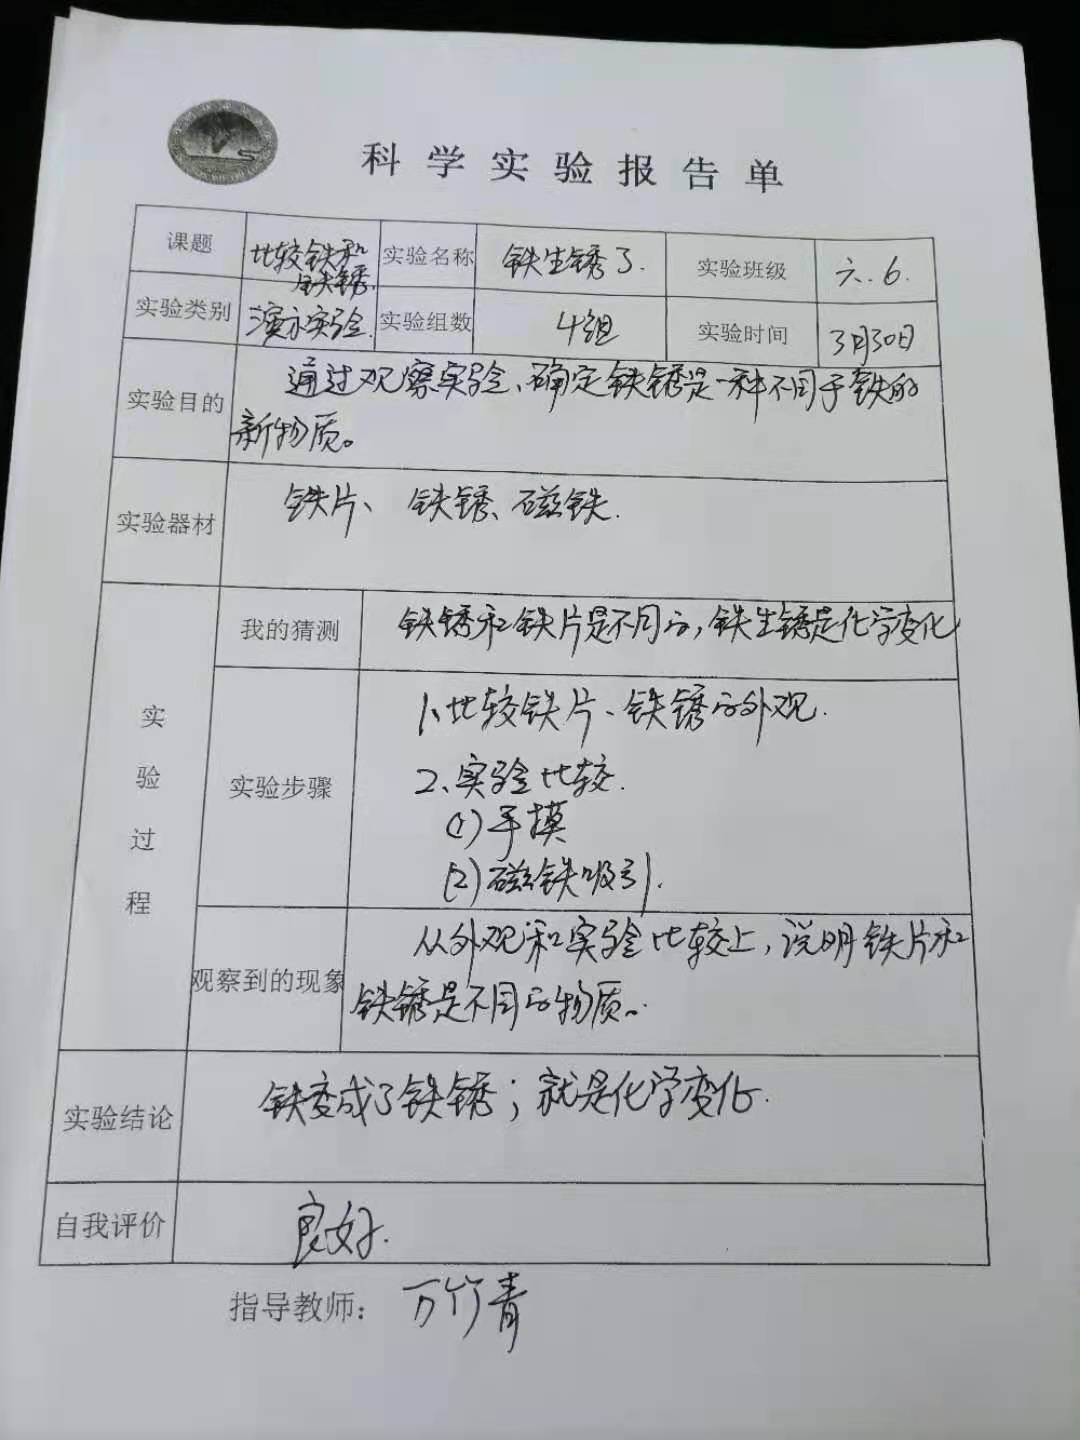 科学实验报告单
课题 比较铁和铁锈 实验名称 铁生锈了. 实验班级 六.6.
实验类别 演示实验. 实验组数 4组 实验时间 3月30日
实验目的 通过观察实验、确定铁锈是一种不同于铁的
新物质。
实验器材 铁片、铁锈、磁铁.
实验过程
我的猜测 铁锈和铁片是不同的,铁生锈是化学变化
实验步骤
1、比较铁片、铁锈的外观.
2、实验比较.
(1)手摸
(2)磁铁吸引.
观察到的现象 从外观和实验比较上,说明铁片和
铁锈是不同的物质。
实验结论 铁变成了铁锈;就是化学变化.
自我评价 良好.
指导教师: 万竹青